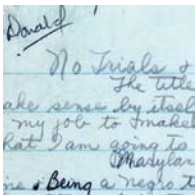 Donald
No Trials &
The title
ake sense by itself
my job to make
hat I am going to
Marylan
ne & Being a negro T